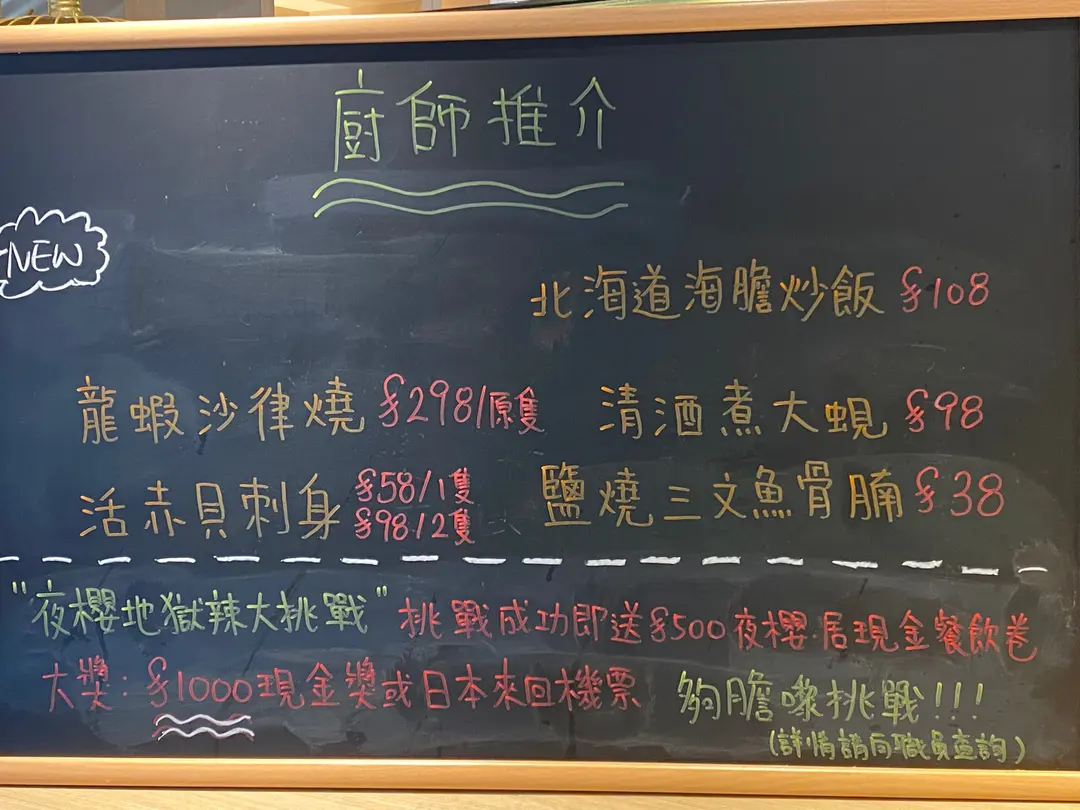 廚師推介
NEW
北海道海膽炒飯 $108
龍蝦沙律燒 $298/原隻
清酒煮大蜆 $98
活赤貝刺身 $58/1隻
$98/2隻
鹽燒三文魚骨腩 $38
"夜櫻地獄辣大挑戰" 挑戰成功即送$500夜櫻.居現金餐飲卷
大獎:$1000現金獎或日本來回機票 夠膽嚟挑戰!!!
(詳情請向職員查詢)